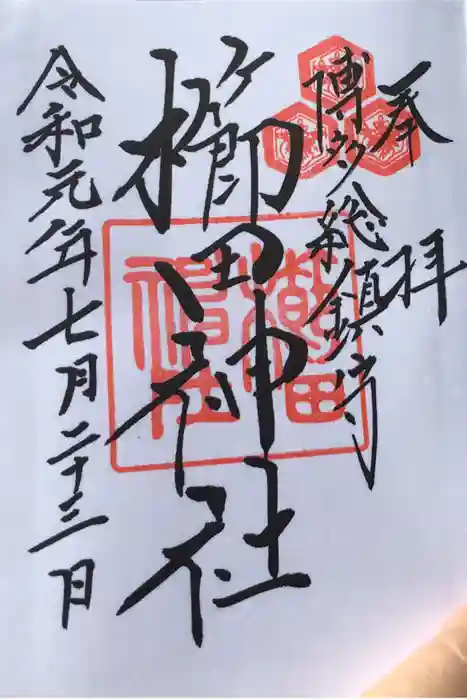 奉拝
博多総鎮守
櫛田神社
令和元年七月二十三日
櫛田
神社